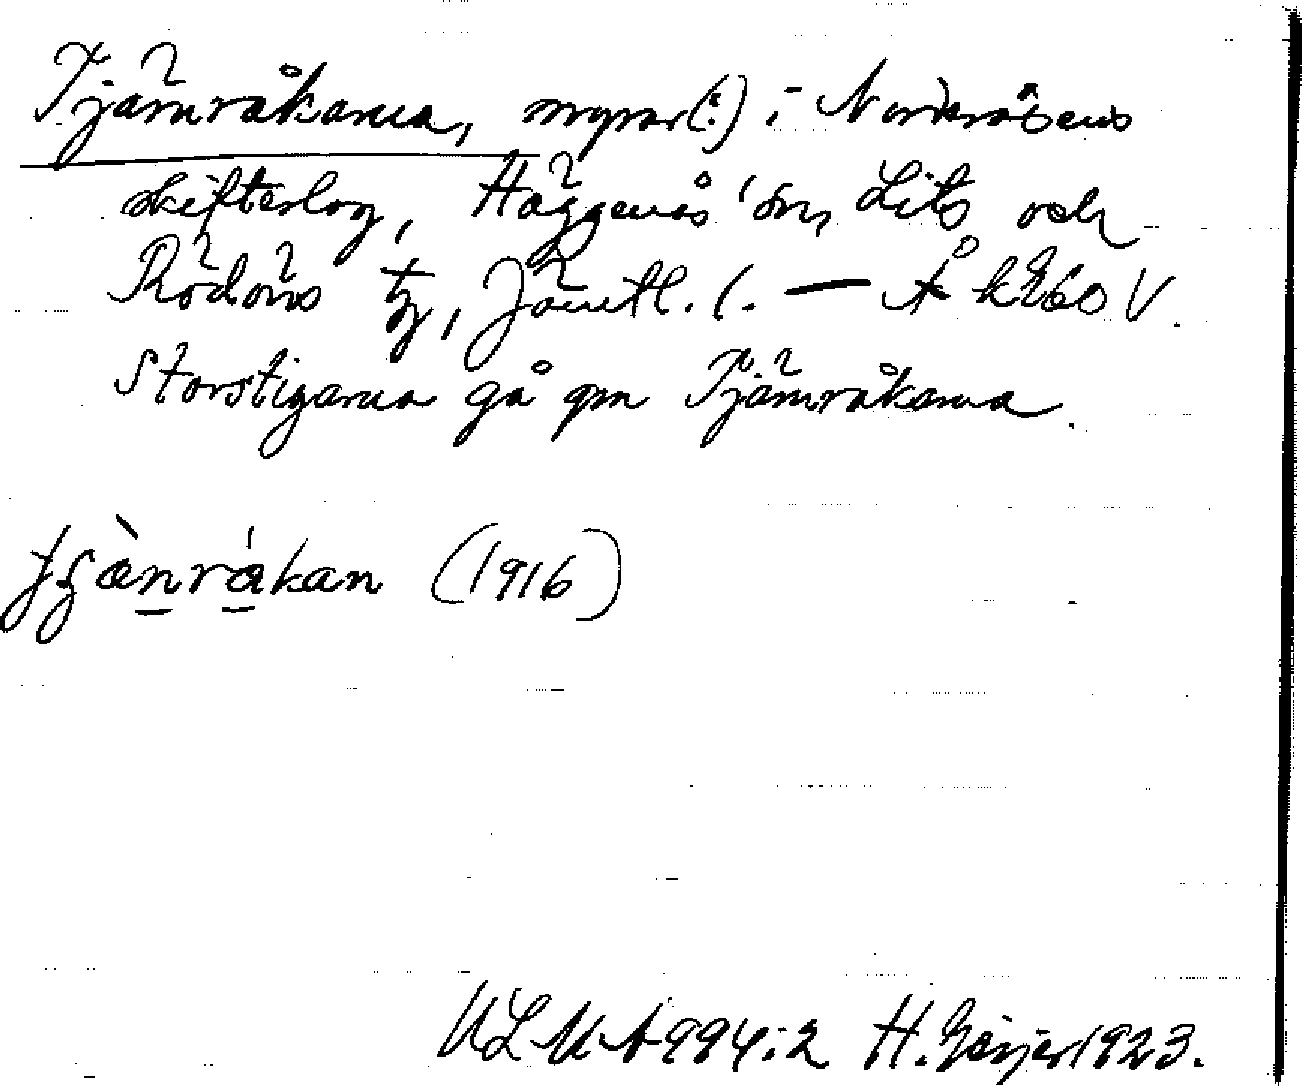 Tjärnråkarna, myrar(:) i Nordanåsens
skifteslag, Häggenås sn, Lits och
Rödöns tg, Jämtl. l. — Å k 260 V.
Storstigarna gå gm Tjärnråkarna.
(1916)
ULMA 994:2 H. Geijer 1923.